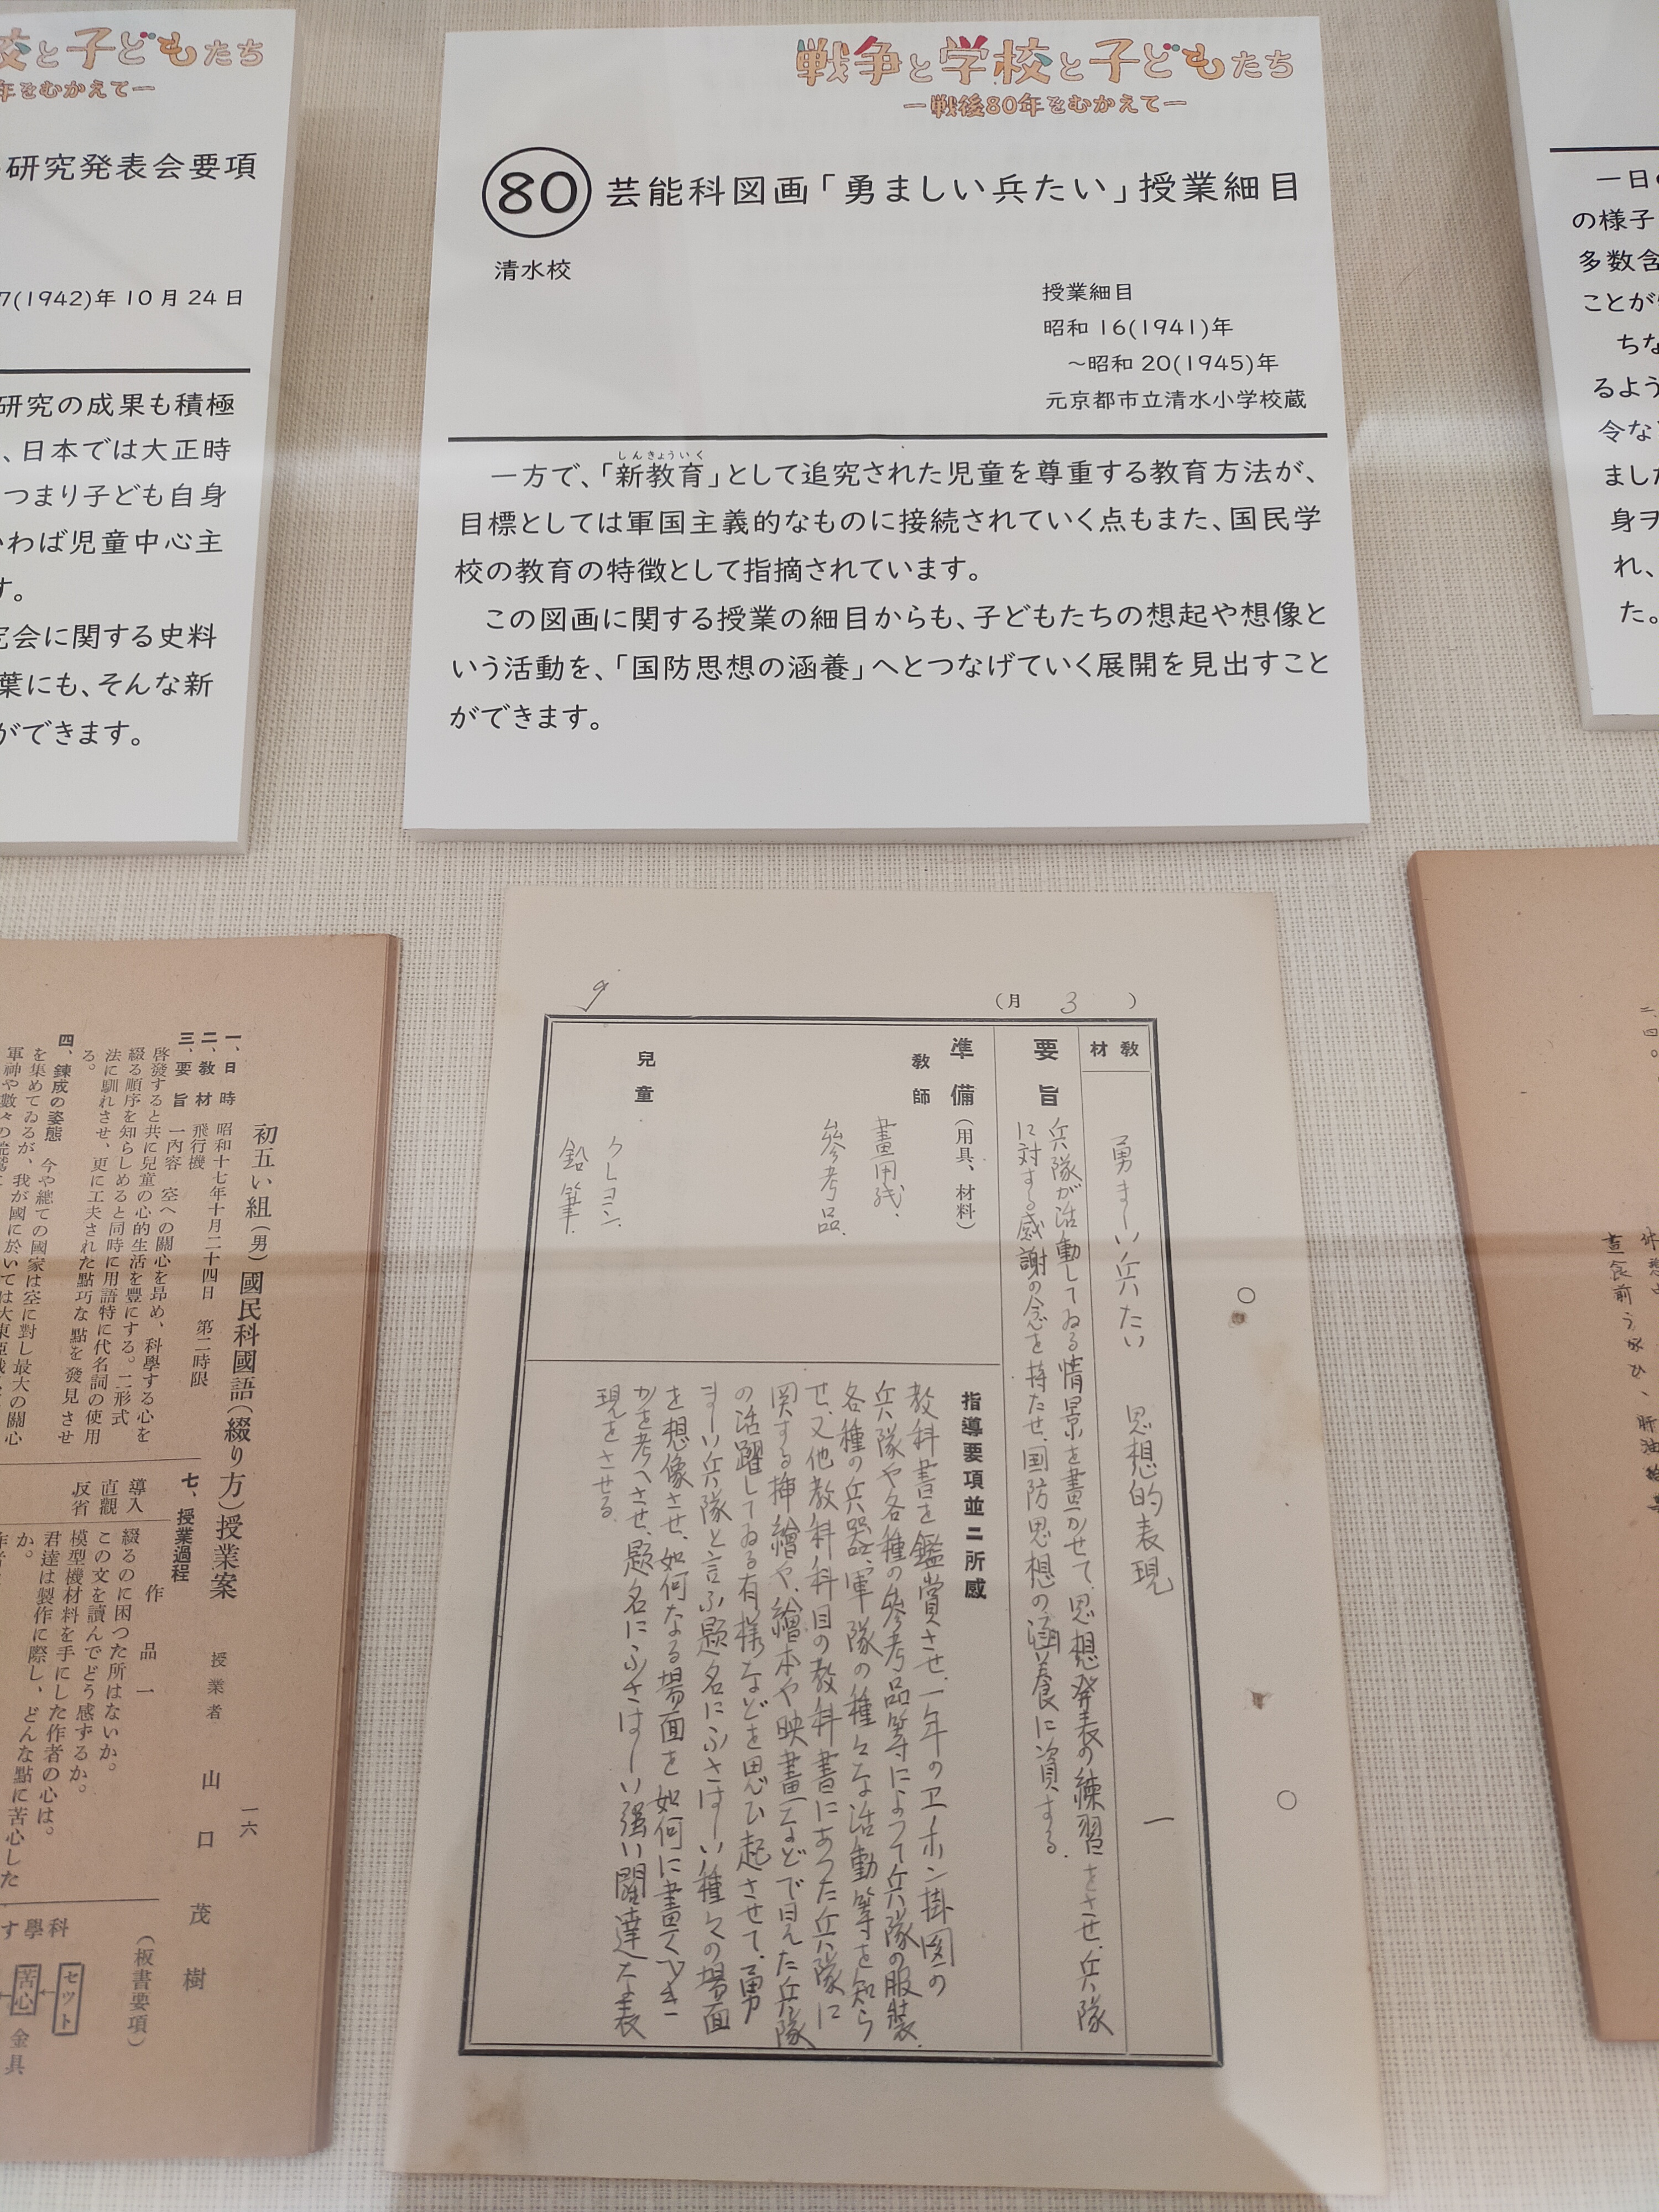 校と子どもたち
年をむかえてー
研究発表会要項
7(1942)年10月24日
研究の成果も積極
、日本では大正時
つまり子ども自身
いわば児童中心主
す。
究会に関する史料
葉にも、そんな新
ができます。
戦争と学校と子どもたち
ー戦後80年をむかえてー
80 芸能科図画「勇ましい兵たい」授業細目
清水校
授業細目
昭和16(1941)年
～昭和20(1945)年
元京都市立清水小学校蔵
しんきょういく
一方で、「新教育」として追究された児童を尊重する教育方法が、
目標としては軍国主義的なものに接続されていく点もまた、国民学
校の教育の特徴として指摘されています。
この図画に関する授業の細目からも、子どもたちの想起や想像と
いう活動を、「国防思想の涵養」へとつなげていく展開を見出すこと
ができます。
一日
の様子
多数含
ことが
ちな
るよう
令な
ました
身ヲ
れ、
た。
(月 3 )
9
教材 勇ましい兵たい 思想的表現 一
要旨 兵隊が活動してゐる情景を畫かせて、思想発表の練習をさせ、兵隊
に対する感謝の念を持たせ、国防思想の涵養に資する。
準備(用具、材料)
教師 畫用紙、
参考品、
兒童 クレヨン、
鉛筆、
指導要項並ニ所感
教科書を鑑賞させ、一年のエノホン掛図の
兵隊や各種の参考品等によって兵隊の服装、
各種の兵器、軍隊の種々な活動等を知ら
せ、又他教科科目の教科書にあった兵隊に
関する挿繪や、繪本や映畫などで見た兵隊
の活躍してゐる有様などを思ひ起させて、勇
ましい兵隊と言ふ題名にふさはしい種々の場面
を想像させ、如何なる場面を如何に畫くべき
かを考へさせ、題名にふさはしい強い闊達な表
現をさせる
初五い組(男)國民科國語(綴り方)授業案
授業者 山口茂樹
一六
一、日時 昭和十七年十月二十四日 第二時限
二、教材 飛行機
三、要旨 一内容 空への關心を昂め、科學する心を
啓發すると共に兒童の心的生活を豐にする。二形式
綴る順序を知らしめると同時に用語特に代名詞の使用
法に馴れさせ、更に工夫された點巧な點を發見させ
る。
四、錬成の姿態 今や總ての國家は空に對し最大の關心
を集めてゐるが、我が國に於いては大東亞戰
軍神や數々の荒鷲
七、授業過程
導入
直觀
反省
作品一
綴るのに困つた所はないか。
この文を讀んでどう感ずるか。
模型機材料を手にした作者の心は。
君達は製作に際し、どんな點に苦心した
か。
(板書要項)
科學す
セット
苦心
金具